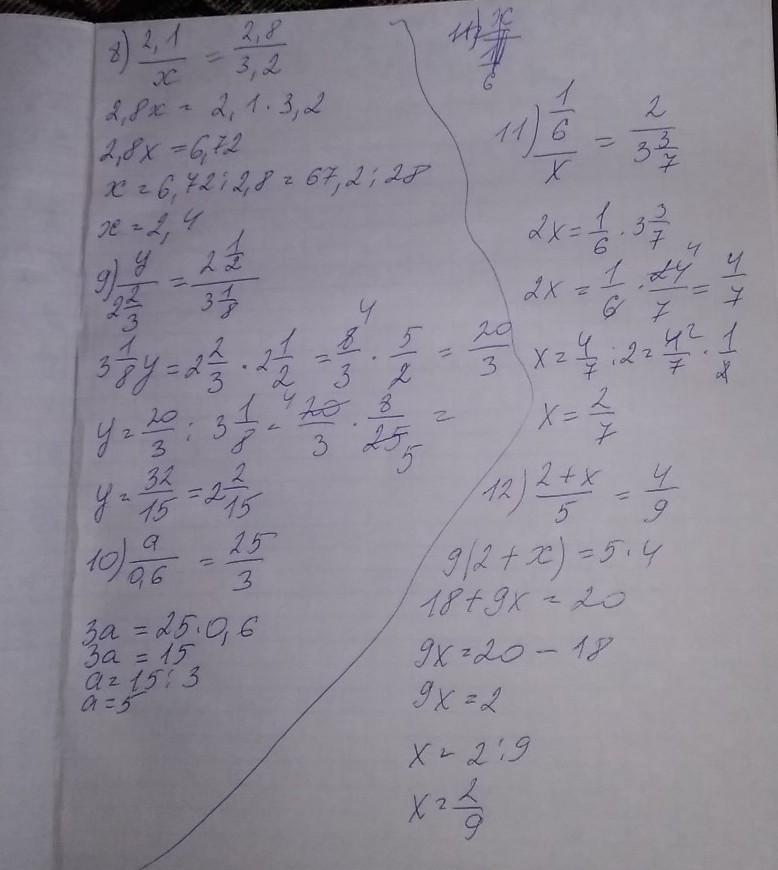 8) 2,1/x = 2,8/3,2
2,8x = 2,1 · 3,2
2,8x = 6,72
x = 6,72 : 2,8 = 67,2 : 28
x = 2,4
9) y/2 2/3 = 2 1/2 / 3 1/8
3 1/8 y = 2 2/3 · 2 1/2 = 8/3 · 5/2 = 20/3
4
y = 20/3 : 3 1/8 = 20/3 · 8/25 =
4 5
y = 32/15 = 2 2/15
10) a/0,6 = 25/3
3a = 25 · 0,6
3a = 15
a = 15 : 3
a = 5
11) x/
1/6
11) 1/6 / x = 2 / 3 3/7
2x = 1/6 · 3 3/7
2x = 1/6 · 24/7 = 4/7
4
x = 4/7 : 2 = 4/7 · 1/2
2
x = 2/7
12) 2+x/5 = 4/9
9(2+x) = 5 · 4
18 + 9x = 20
9x = 20 - 18
9x = 2
x = 2 : 9
x = 2/9